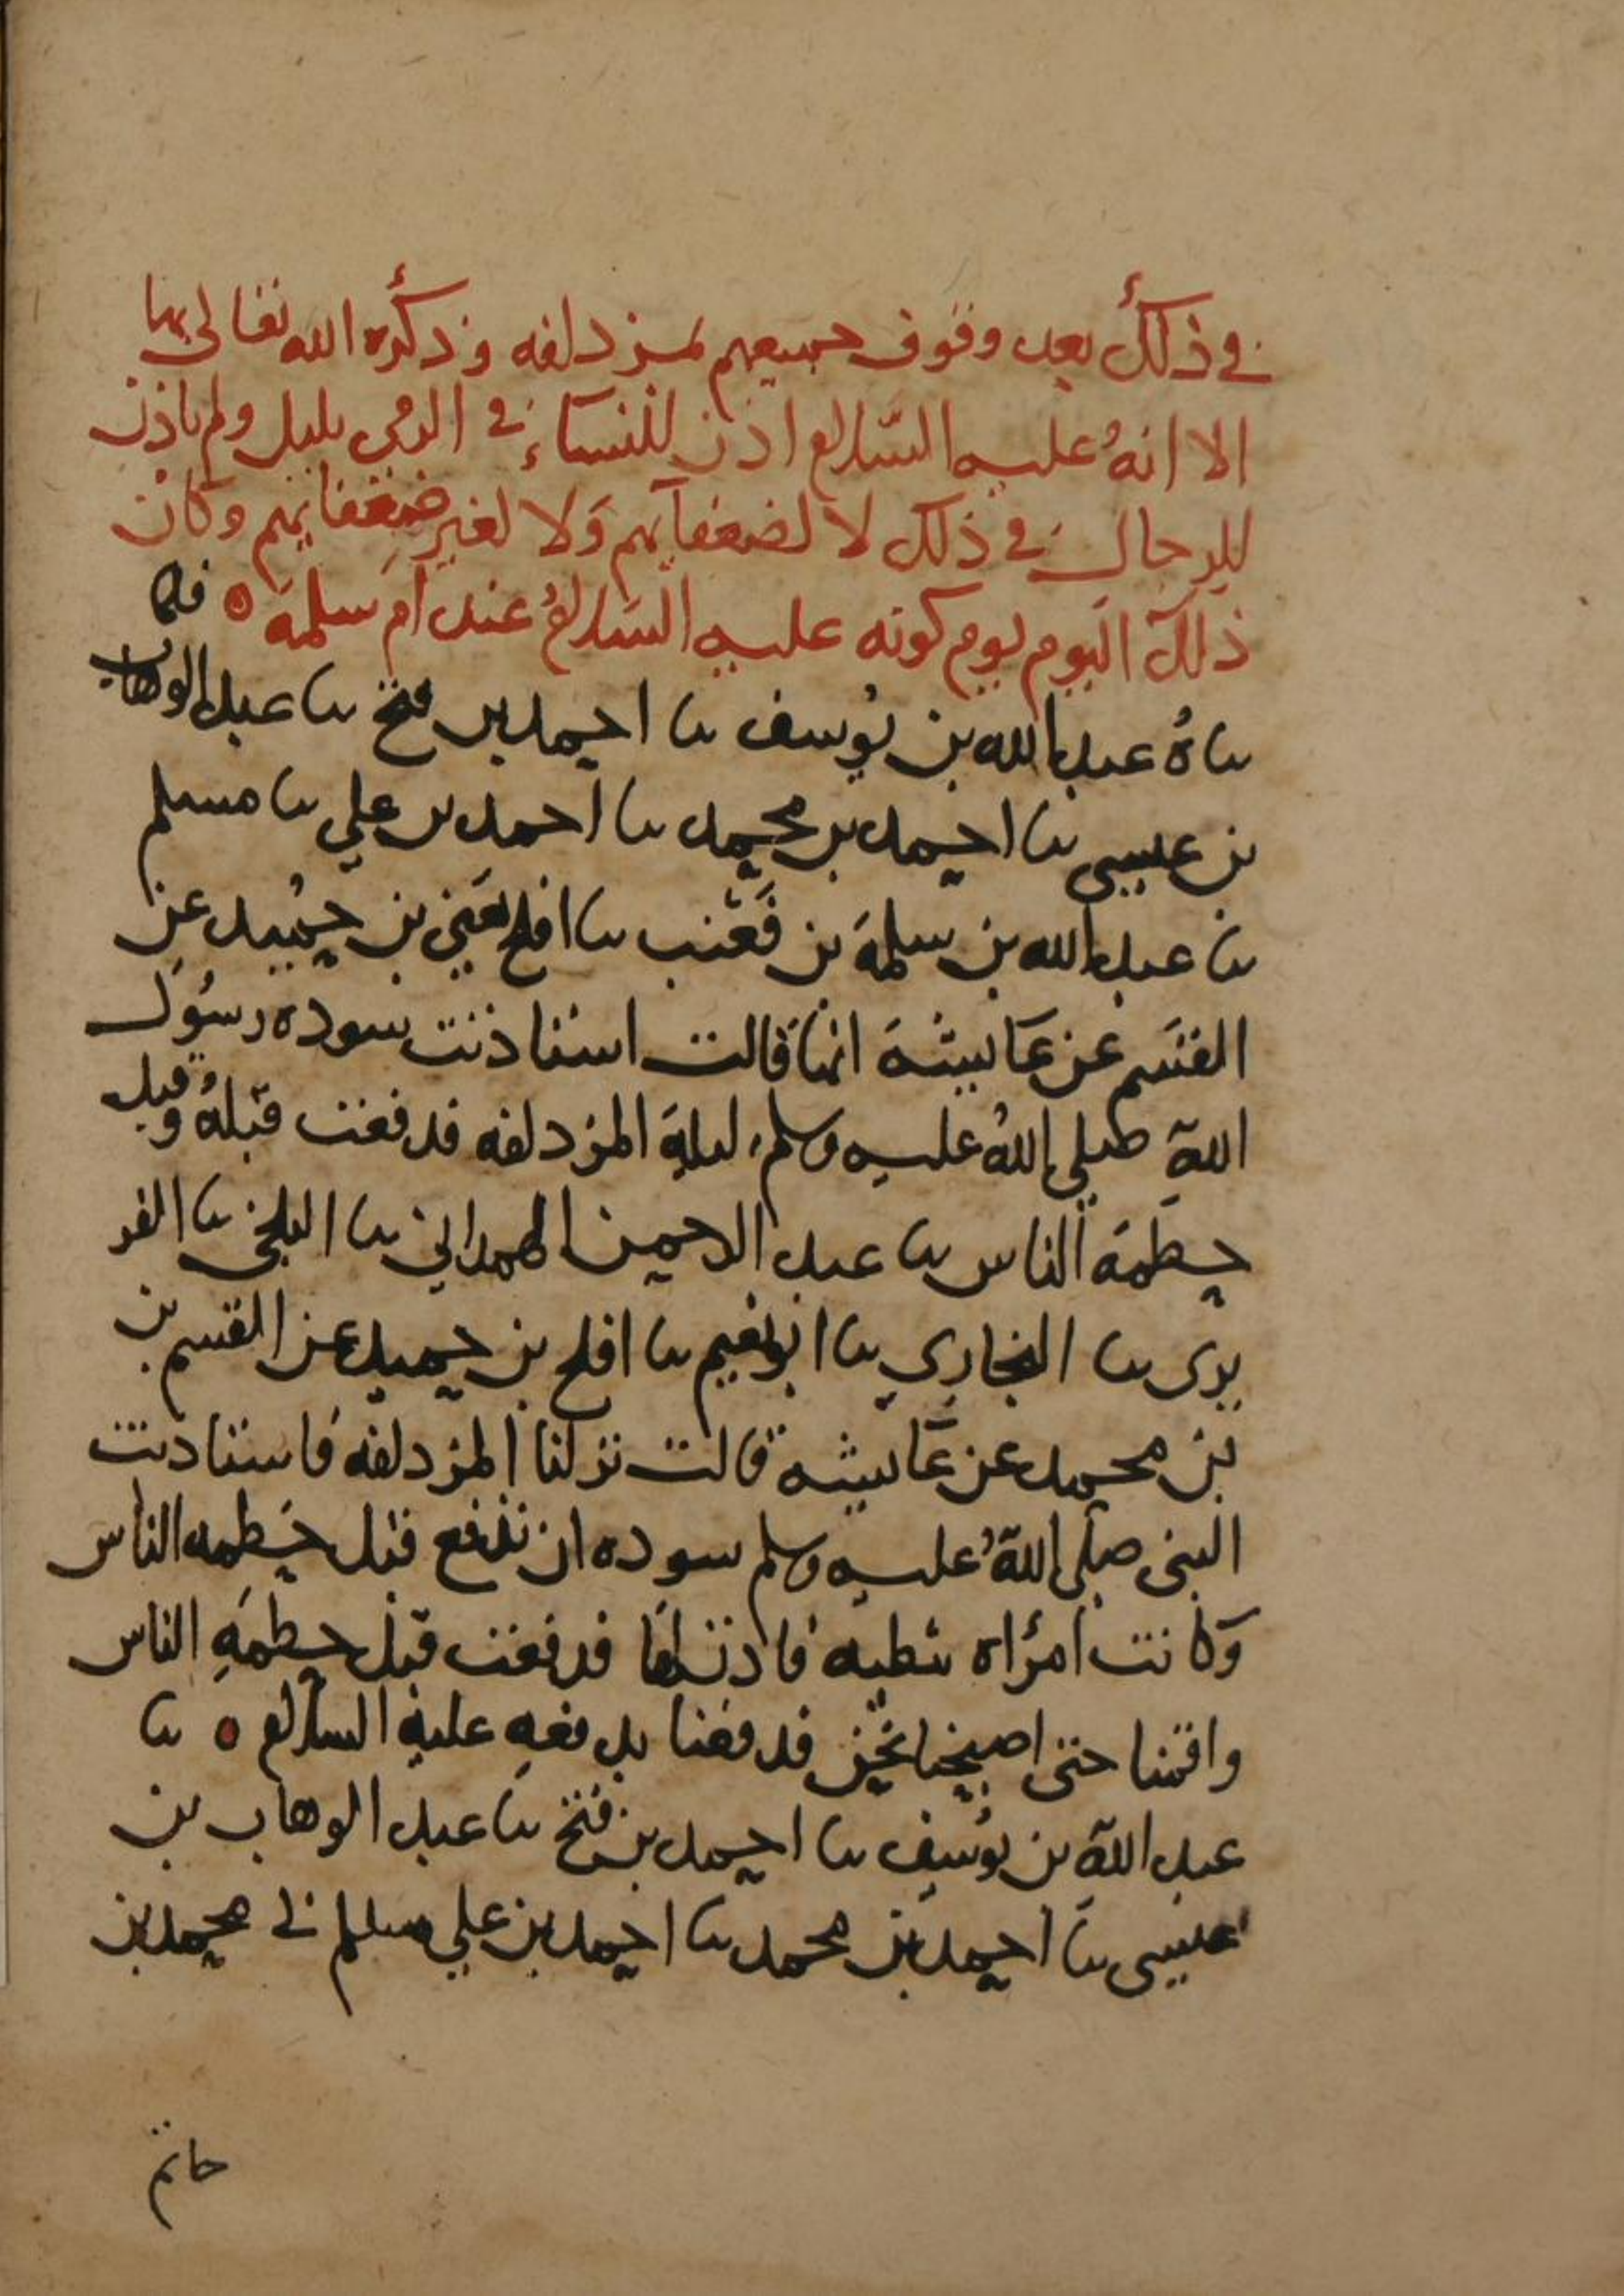 في ذلك بعد وقوف جميعهم بمزدلفه وذكره الله تعالى بها
الا انهُ عليه السّلام اذن للنساء في الرمي بليل ولم ياذن
للرجال في ذلك لا لضعفآيهم وَلا لغير ضعفايهم وكان
ذلك اليوم يوم كونه عليه السّلامُ عند ام سلمة ه فكما
ثناهُ عبد الله بن يُوسف ثنا احمد بن فتح ثنا عبد الوهاب
بن عيسى ثنا احمد بن محمد ثنا احمد بن علي ثنا مسلم
ثنا عبد الله بن سلمةَ بن قَعْنب ثنا افلح يَعني بن حُميد عن
القسَم عن عَايشةَ انها قالت استاذنت سوده رسُول
اللهِ صلى اللهُ عليه وسلم ليلة المزدلفه فدفعت قبلهُ وقبل
حطمة الناس ثنا عبد الرحمن الهمداني ثنا البلخي ثنا الفر
بري ثنا البخاري ثنا ابو نعيم ثنا افلح بن حميد عن القسم بن
بن محمد عن عَايشة قالت نزلنا المزدلفه فاستاذنت
النبي صلى اللهُ عليه وسلم سوده ان تدفع قبل حَطمه الناس
وَكانت امرْاه ثبطه فاذن لها فدفعت قبل حطمَةِ الناس
واقمنا حتى اصبحنا نحن فدفعنا بدفعهِ عليهِ السلام ه ثنا
عبد اللهِ بن يُوسف ثنا احمد بن فتح ثنا عبد الوهاب بن
عيسى ثنا احمد بن محمد ثنا احمد بن علي مسلم ني محمد بن
حاتم